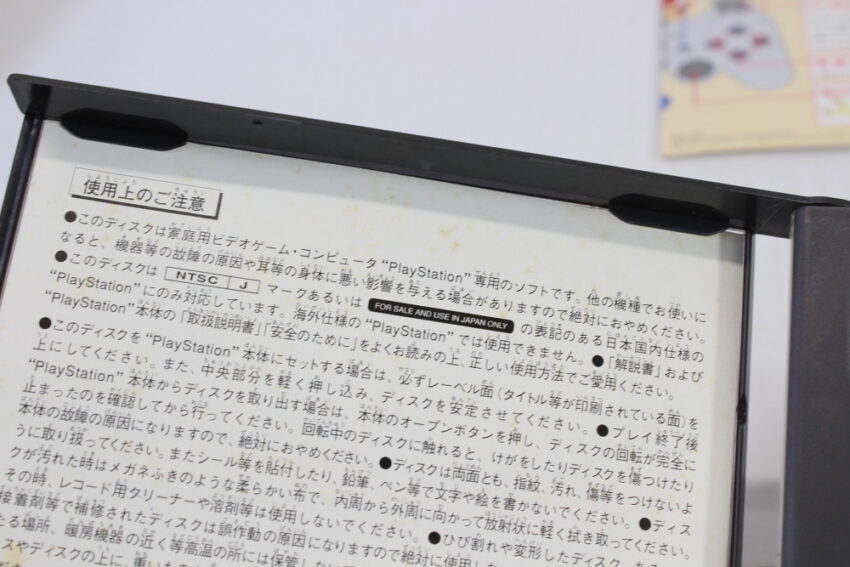 使用上のご注意
●このディスクは家庭用ビデオゲーム・コンピュータ“PlayStation”専用のソフトです。他の機種でお使いに
なると、機器等の故障の原因や耳等の身体に悪い影響を与える場合がありますので絶対におやめください。
●このディスクは NTSC J マークあるいは FOR SALE AND USE IN JAPAN ONLY の表記のある日本国内仕様の
“PlayStation”にのみ対応しています。海外仕様の“PlayStation”では使用できません。●「解説書」および
“PlayStation”本体の「取扱説明書」「安全のために」をよくお読みの上、正しい使用方法でご愛用ください。
●このディスクを“PlayStation”本体にセットする場合は、必ずレーベル面(タイトル等が印刷されている面)を
上にしてください。また、中央部分を軽く押し込み、ディスクを安定させてください。●プレイ終了後
“PlayStation”本体からディスクを取り出す場合は、本体のオープンボタンを押し、ディスクの回転が完全に
止まったのを確認してから行ってください。回転中のディスクに触れると、けがをしたりディスクを傷つけたり
本体の故障の原因になりますので、絶対におやめください。●ディスクは両面とも、指紋、汚れ、傷等をつけないよ
うに取り扱ってください。またシール等を貼付したり、鉛筆、ペン等で文字や絵を書かないでください。●ディス
クが汚れた時はメガネふきのような柔らかい布で、内周から外周に向かって放射状に軽く拭き取ってください。
その時、レコード用クリーナーや溶剤等は使用しないでください。●ひび割れや変形したディスク、ある
接着剤等で補修されたディスクは誤作動の原因になりますので絶対に使用し
たる場所、暖房機器の近く等高温の所には保管しない
スやディスクの上に、重いもの